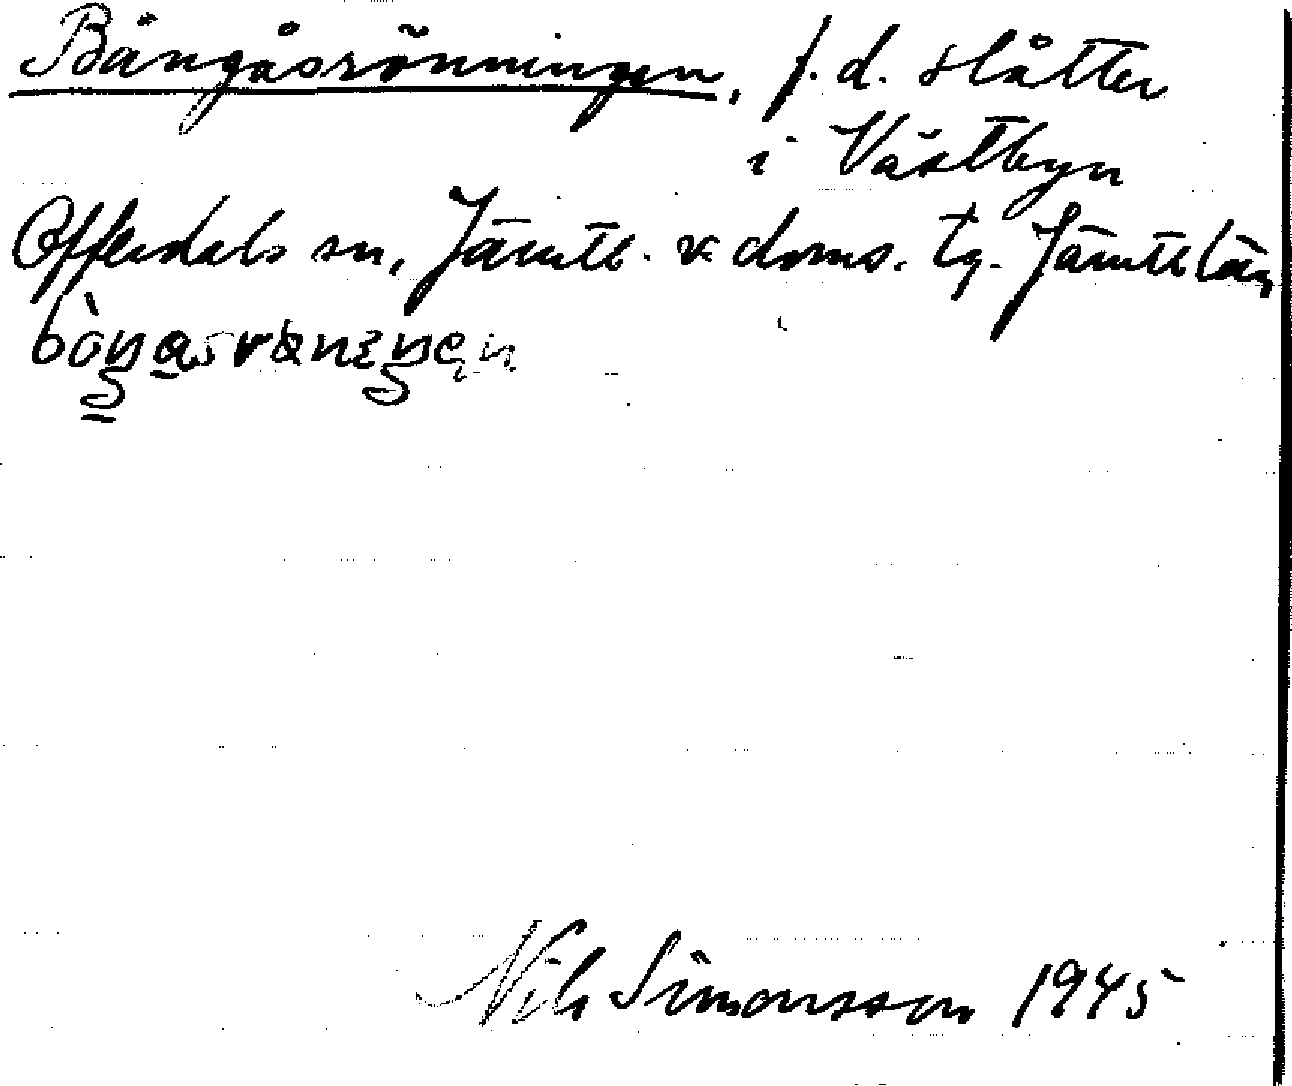 Bångåsrönningen, f. d. slåtter
i Västbyn
Offerdals sn, Jämtl. v. doms. tg. Jämtl. län
Nils Simonsson 1945